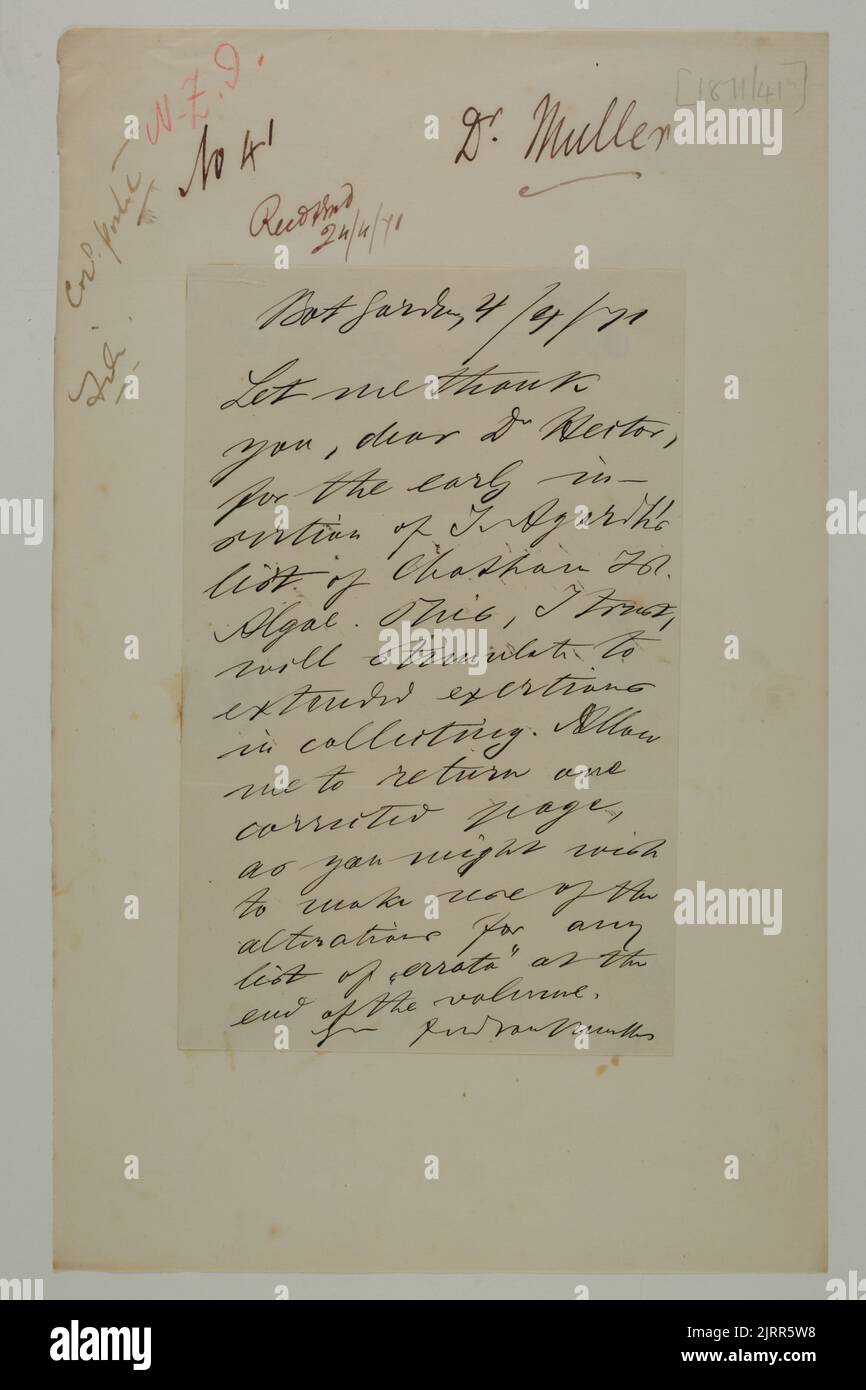 [1871/41]
N.Z.I.
No 41
Dr. Muller
Recd
24/4/71
Bot Garden, 4/4/71
Let me thank
you, dear Dr Hector,
for the early in-
sertion of J. Agardh's
list of Chatham Isl.
Algae. This, I trust,
will stimulate to
extended exertions
in collecting. Allow
me to return one
corrected page,
as you might wish
to make use of the
alterations for any
list of „errata" at the
end of the volume.
alamy
Image ID: 2JRR5W8
www.alamy.com